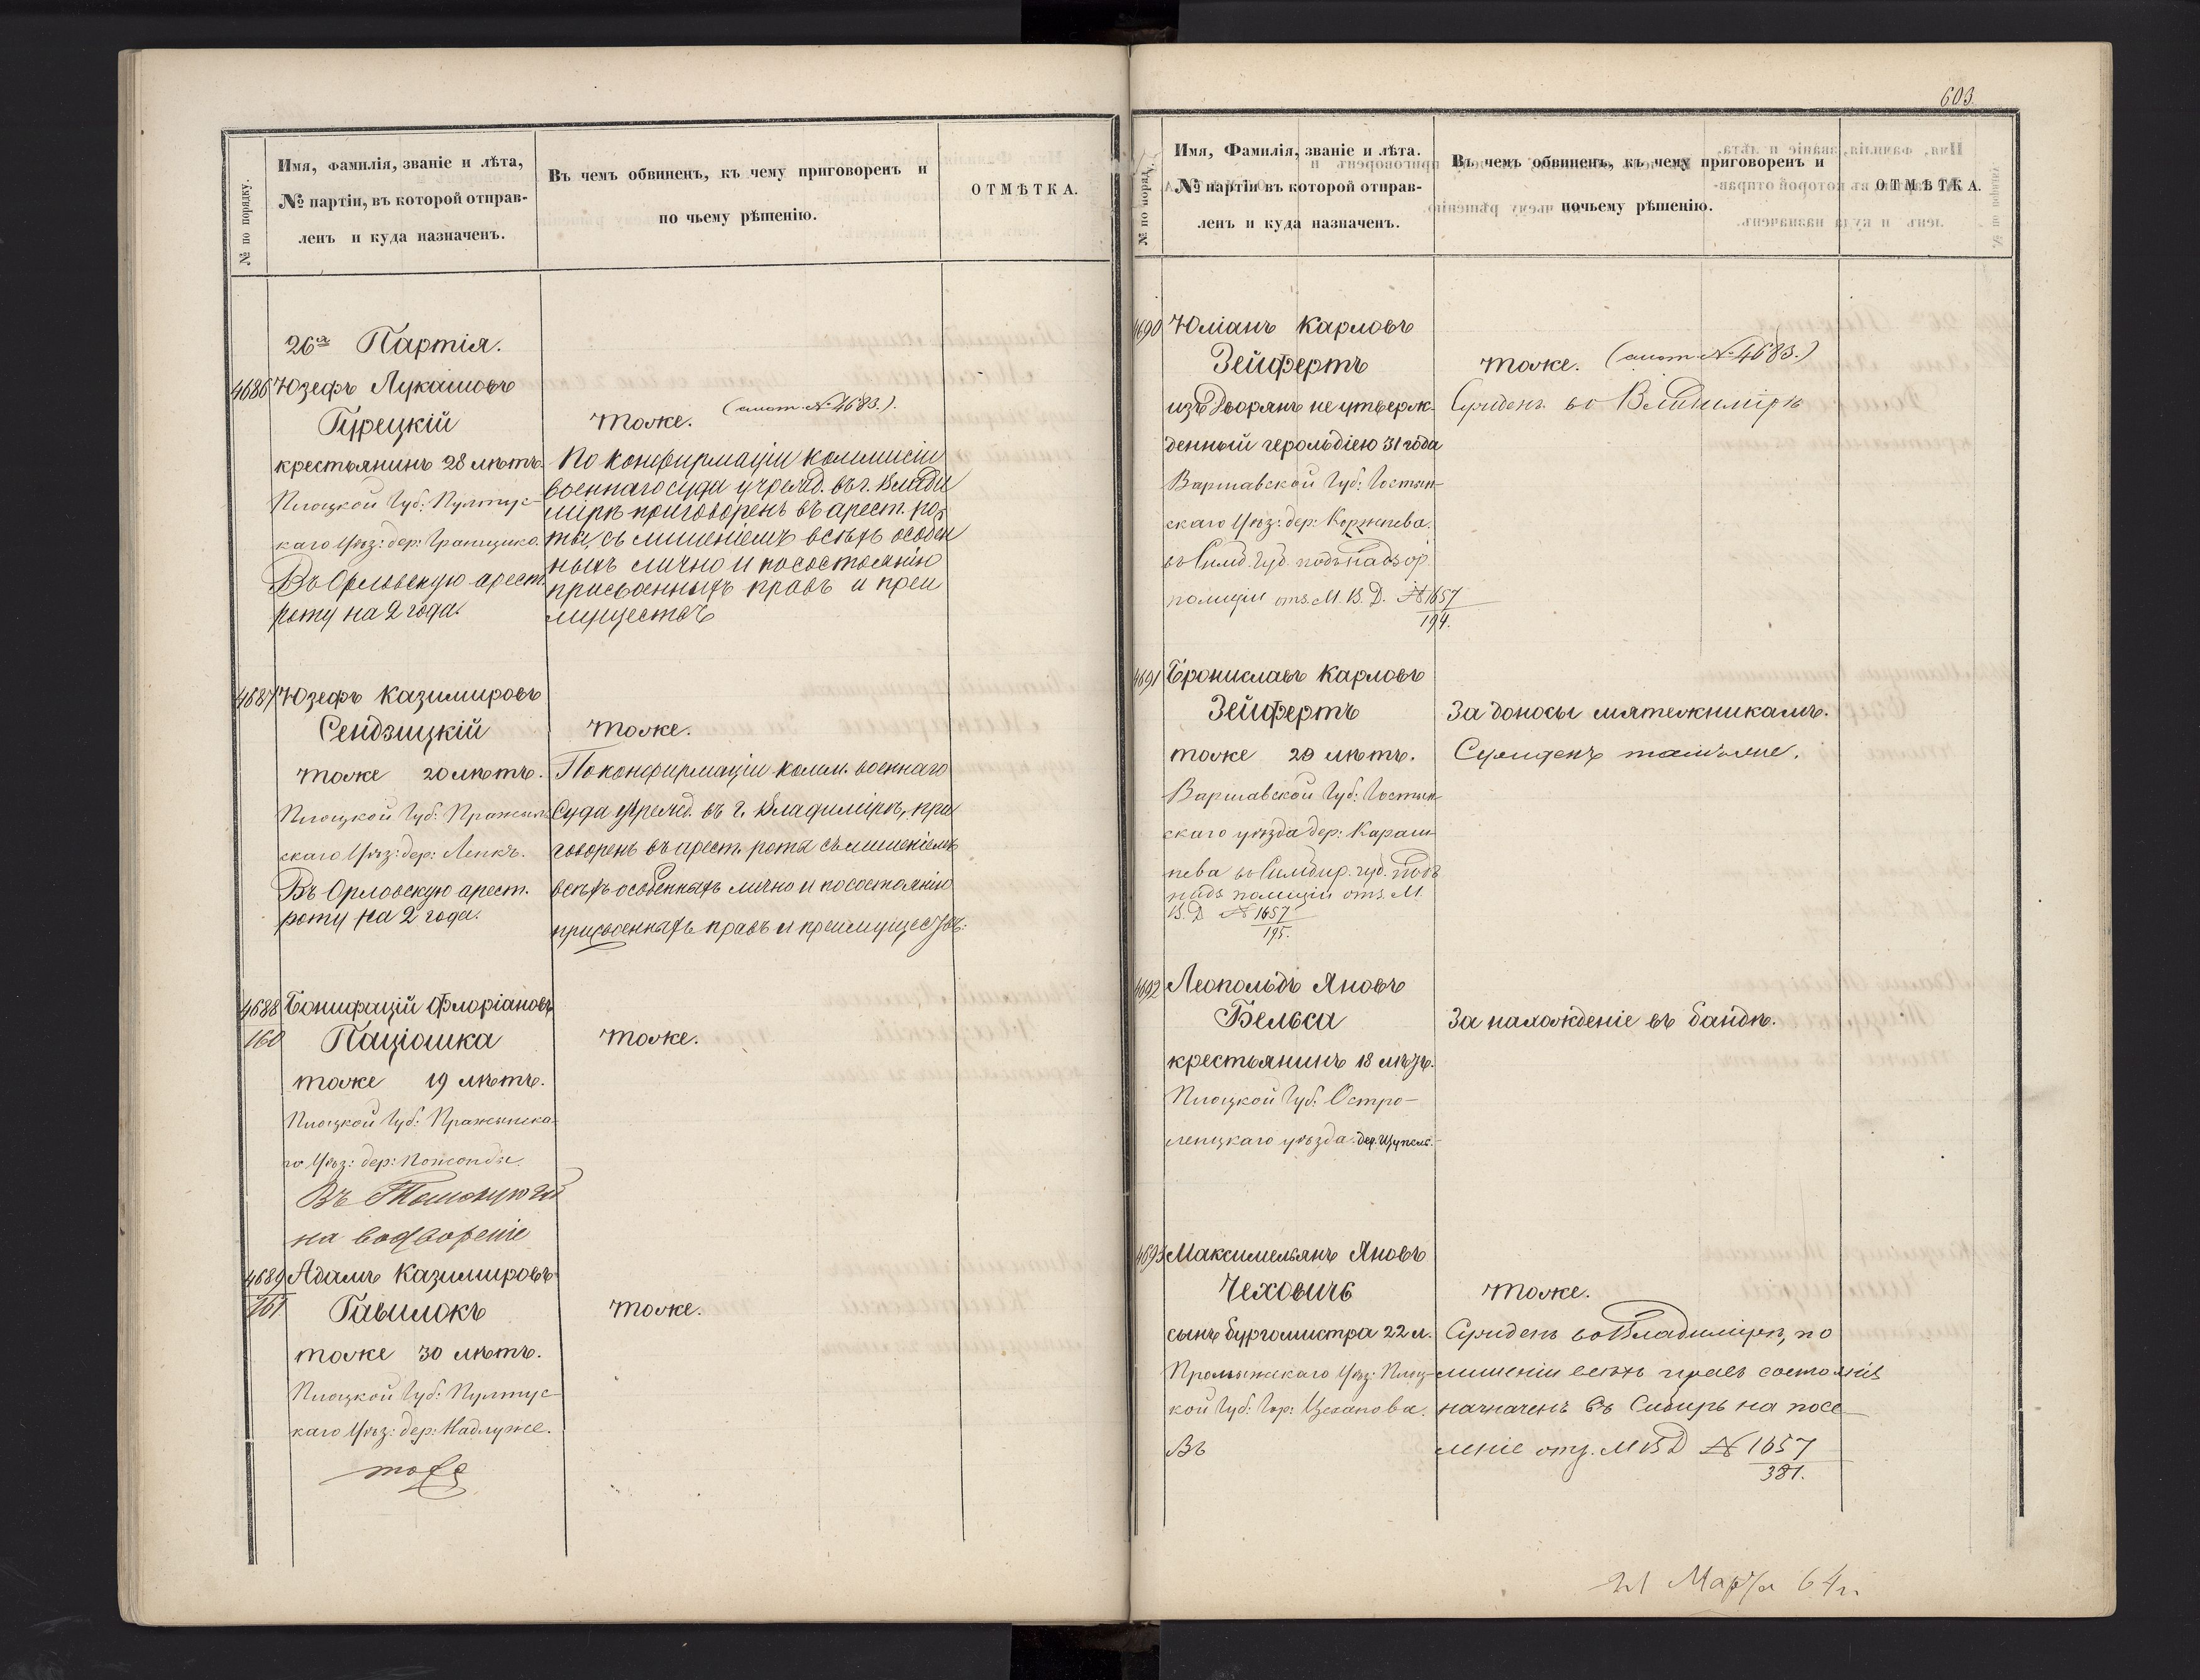 № по порядку.
Имя, фамилія, званіе и лѣта,
№ партіи, въ которой отправ-
ленъ и куда назначенъ.
Въ чемъ обвиненъ, къ чему приговоренъ и
по чьему рѣшенію.
ОТМѢТКА.
26я Партія.
4686 Юзефъ Лукашовъ
Гурецкій
крестьянинъ 28 лѣтъ.
Плоцкой Губ: Пултус-
каго Уѣз: дер:
Въ Орловскую арест.
роту на 2 года.
тоже. (смот. № 4683.).
По конфирмаціи коммисіи
военнаго суда учрежд. въ г. Влади
мірѣ приговоренъ въ арест. ро
ты, съ лишеніемъ всѣхъ особен
ныхъ лично и по состоянію
присвоенныхъ правъ и преи
муществъ
4687 Юзефъ Казимировъ
Сендзицкій
тоже 20 лѣтъ.
Плоцкой Губ: Пражныш
скаго Уѣз: дер: Ленкъ.
Въ Орловскую арест.
роту на 2 года.
тоже.
По конфирмаціи комм. военнаго
Суда учрежд. въ г. Владимірѣ, при
говоренъ въ арест. роты съ лишеніемъ
всѣхъ особенныхъ лично и по состоянію
присвоенныхъ правъ и преимуществъ:
4688 Бонифацій Флоріановъ
160 Паціошка
тоже 19 лѣтъ.
Плоцкой Губ: Пражнышска-
го Уѣз: дер:
Въ Томскую Губ
на водвореніе
тоже.
4689 Адамъ Казимировъ
161 Гавилокъ
тоже 30 лѣтъ.
Плоцкой Губ: Пултус-
каго Уѣз: дер: Надлуже.
тоже
тоже.
603.
№ по поряд.
Имя, Фамилія, званіе и лѣта.
№ партіи въ которой отправ-
ленъ и куда назначенъ.
Въ чемъ обвиненъ, къ чему приговоренъ и
почьему рѣшенію.
ОТМѢТКА.
4690 Юліанъ Карловъ
Зейфертъ
изъ Дворянъ не утверж-
денный герольдіею 31 года
Варшавской Губ: Гостын-
скаго Уѣз: дер:
въ Симб. губ. подъ надзор
полиціи отз. М. В. Д. № 1657
194.
тоже. (смот. № 4683.)
Сужденъ во Владимірѣ
4691 Брониславъ Карловъ
Зейфертъ
тоже 20 лѣтъ.
Варшавской Губ: Гостын-
скаго уѣзда дер: Караш-
нева въ Симбир. губ. подъ
надз полиціи отз. М.
В. Д № 1657
195.
За доносы мятежникамъ.
Сужденъ тамъ же.
4692 Леопольдъ Яновъ
Бельса
крестьянинъ 18 лѣтъ.
Плоцкой Губ: Остро-
ленцкаго уѣзда дер.
За нахожденіе въ бандѣ.
4693 Максимельянъ Яновъ
Чеховичъ
сынъ бургомистра 22 л.
Уѣз: Плоц-
кой Губ: Гор: Цеханова.
Въ
тоже.
Сужденъ во Владимірѣ, по
лишеніи всѣхъ правъ состоянія
назначенъ въ Сибирь на посе
леніе отз. МВД № 1657
381.
21 Марта 64 г.